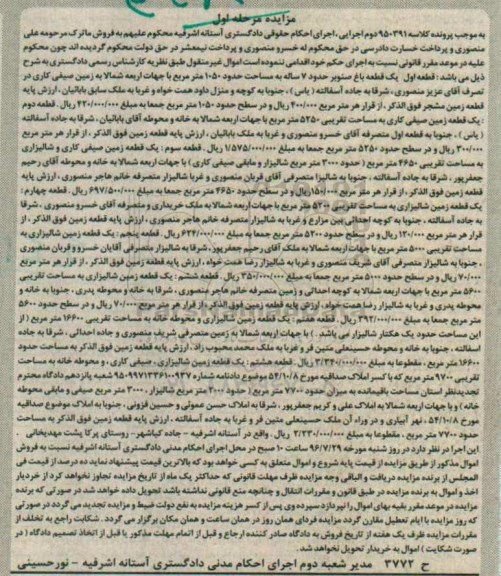 مزایده مرحله اول
به موجب پرونده کلاسه ۹۵۰۳۹۱ دوم اجرایی ، اجرای احکام حقوقی دادگستری آستانه اشرفیه محکوم علیهم به فروش ماترک مرحومه علی
منصوری و پرداخت خسارت دادرسی در حق محکوم له خسرو منصوری و پرداخت نیمعشر در حق دولت محکوم گردیده اند چون محکوم
علیه در موعد مقرر قانونی نسبت به اجرای حکم خود اقدامی ننموده است اموال غیر منقول طبق نظریه کارشناس رسمی دادگستری به شرح
ذیل می باشد : قطعه اول یک قطعه باغ صنوبر حدود ۷ ساله به مساحت حدود ۱۰۵۰ متر مربع با جهات اربعه شمالا به زمین صیفی کاری در
تصرف آقای عزیز منصوری ، شرقا به جاده آسفالته ( یاس ) ، جنوبا به کوچه و منزل داود همت خواه و غربا به ملک سابق بابائیان ، ارزش پایه
قطعه زمین مشجر فوق الذکر ، از قرار هر متر مربع ۴۰۰/۰۰۰ ریال و در سطح حدود ۱۰۵۰ متر مربع جمعا به مبلغ ۴۲۰/۰۰۰/۰۰۰ ریال . قطعه دوم
: یک قطعه زمین صیفی کاری به مساحت تقریبی ۵۲۵۰ متر مربع با جهات اربعه شمالا به خانه و محوطه آقای بابائیان ، شرقا به جاده آسفالته
( یاس ) ، جنوبا به قطعه اول متصرفه آقای خسرو منصوری و غربا به ملک بابائیان ، ارزش پایه قطعه زمین فوق الذکر ، از قرار هر متر مربع
۳۰۰/۰۰۰ ریال و در سطح حدود ۵۲۵۰ متر مربع جمعا به مبلغ ۱/۵۷۵/۰۰۰/۰۰۰ ریال . قطعه سوم : یک قطعه زمین صیفی کاری و شالیزاری
به مساحت تقریبی ۴۶۵۰ متر مربع ( حدود ۳۰۰۰ متر مربع شالیزار و مابقی صیفی کاری ) با جهات اربعه شمالا به خانه و محوطه آقای رحیم
جعفرپور ، شرقا به جاده آسفالته ، جنوبا به شالیزار متصرفی آقای قربان منصوری و غربا شالیزار متصرفه خانم هاجر منصوری ، ارزش پایه
قطعه زمین فوق الذکر ، از قرار هر متر مربع ۱۵۰/۰۰۰ ریال و در سطح حدود ۴۶۵۰ متر مربع جمعا به مبلغ ۶۹۷/۵۰۰/۰۰۰ ریال . قطعه چهارم :
یک قطعه زمین شالیزاری به مساحت تقریبی ۵۲۰۰ متر مربع با جهات اربعه شمالا به ملک خریداری و متصرفه آقای خسرو منصوری ، شرقا
به جاده آسفالته ، جنوبا به کوچه احداثی بین مزارع و غربا به شالیزار متصرفه خانم هاجر منصوری ، ارزش پایه قطعه زمین فوق الذکر ، از
قرار هر متر مربع ۱۲۰/۰۰۰ ریال و در سطح حدود ۵۲۰۰ متر مربع جمعا به مبلغ ۶۲۴/۰۰۰/۰۰۰ ریال . قطعه پنجم : یک قطعه زمین شالیزاری به
مساحت تقریبی ۵۰۰۰ متر مربع با جهات اربعه شمالا به ملک آقای رحیم جعفرپور ، شرقا به شالیزار متصرفی آقایان خسرو و قربان منصوری
، جنوبا به شالیزار متصرفی آقای شریف منصوری و غربا به شالیزار رضا همت خواه ، ارزش پایه قطعه زمین فوق الذکر ، از قرار هر متر مربع
۷۰/۰۰۰ ریال و در سطح حدود ۵۰۰۰ متر مربع جمعا به مبلغ ۳۵۰/۰۰۰/۰۰۰ ریال . قطعه ششم : یک قطعه زمین شالیزاری به مساحت تقریبی
۵۶۰۰ متر مربع با جهات اربعه شمالا به کوچه احداثی و زمین متصرفی خانم هاجر منصوری ، شرقا به خانه و محوطه پدری ، جنوبا به خانه و
محوطه پدری و غربا به شالیزار رضا همت خواه ، ارزش پایه قطعه زمین فوق الذکر ، از قرار هر متر مربع ۷۰/۰۰۰ ریال و در سطح حدود ۵۶۰۰
متر مربع جمعا به مبلغ ۳۹۲/۰۰۰/۰۰۰ ریال . قطعه هفتم : یک قطعه زمین شالیزاری و محوطه خانه به مساحت تقریبی ۱۶۶۰۰ متر مربع ( از
این مساحت حدود یک هکتار شالیزار می باشد . ) با جهات اربعه شمالا به زمین متصرفی شریف منصوری و جاده احداثی ، شرقا به جاده
آسفالته ، جنوبا به خانه و محوطه حسینعلی متین فر و غربا به ملک محمد محبوب زاد ، ارزش پایه قطعه زمین فوق الذکر به مساحت حدود
۱۶۶۰۰ متر مربع ، مقطوعا به مبلغ ۳/۳۴۰/۰۰۰/۰۰۰ ریال . قطعه هشتم : یک قطعه زمین شالیزاری ، صیفی کاری ، و محوطه خانه به مساحت
تقریبی ۹۷۰۰ متر مربع که با کسر املاک صداقیه مورخ ۵۴/۱۰/۸ موضوع دادنامه شماره ۹۵۰۹۹۷۱۳۳۶۱۰۰۹۳۷ شعبه پانزدهم دادگاه محترم
تجدیدنظر استان مساحت باقیمانده به میزان حدود ۷۷۰۰ متر مربع ( حدود ۲۰۰۰ متر مربع شالیزار ، ۳۰۰۰ متر مربع صیفی و مابقی محوطه
خانه ) و با جهات اربعه شمالا به املاک علی و کریم جعفرپور ، شرقا به املاک حسن عموئی و حسین فزونی ، جنوبا به املاک موضوع صداقیه
مورخ ۵۴/۱۰/۸ ، نهر آبیاری و در وراء آن ملک حسینعلی متین فر و غربا به جاده آسفالته ، ارزش پایه قطعه زمین فوق الذکر به مساحت
حدود ۷۷۰۰ متر مربع ، مقطوعا به مبلغ ۲/۲۳۰/۰۰۰/۰۰۰ ریال . واقع در آستانه اشرفیه - جاده کیاشهر- روستای پرکا پشت مهدیخانی .
این اجرا در نظر دارد در روز شنبه مورخه ۹۶/۷/۲۹ ساعت ۱۰ صبح در محل اجرای احکام مدنی دادگستری آستانه اشرفیه نسبت به فروش
اموال مذکور از طریق مزایده از قیمت پایه شروع و اموال متعلق به کسی خواهد بود که بالاترین قیمت پیشنهاد نماید ده درصد از قیمت فی
المجلس از برنده مزایده دریافت و الباقی وجه مزایده ظرف مهلت قانونی که حداکثر یک ماه از تاریخ مزایده تجاوز نخواهد کرد از خریدار
اخذ و اموال به برنده مزایده در طبق قانون و مقررات انتقال و چنانچه منع قانونی نداشته باشد تحویل داده خواهد شد در صورتی که برنده
مزایده در موعد مقرر بقیه بهای اموال را نپردازد سپرده وی پس از کسر هزینه مزایده به نفع دولت ضبط و مزایده تجدید می گردد در صورتی
که روز مزایده با ایام تعطیل مقارن گردد مزایده فردای همان روز در همان ساعت و همان مکان برگزار می گردد . شکایت راجع به تخلف از
مقررات مزایده ظرف یک هفته از تاریخ فروش به دادگاه صادر کننده ارجاع و قبل از اتمام مهلت مذکور یا قبل از اتخاذ تصمیم دادگاه ( در
صورت شکایت ) اموال به خریدار تحویل نخواهد شد .
ح ۳۷۷۲ مدیر شعبه دوم اجرای احکام مدنی دادگستری آستانه اشرفیه - نورحسینی